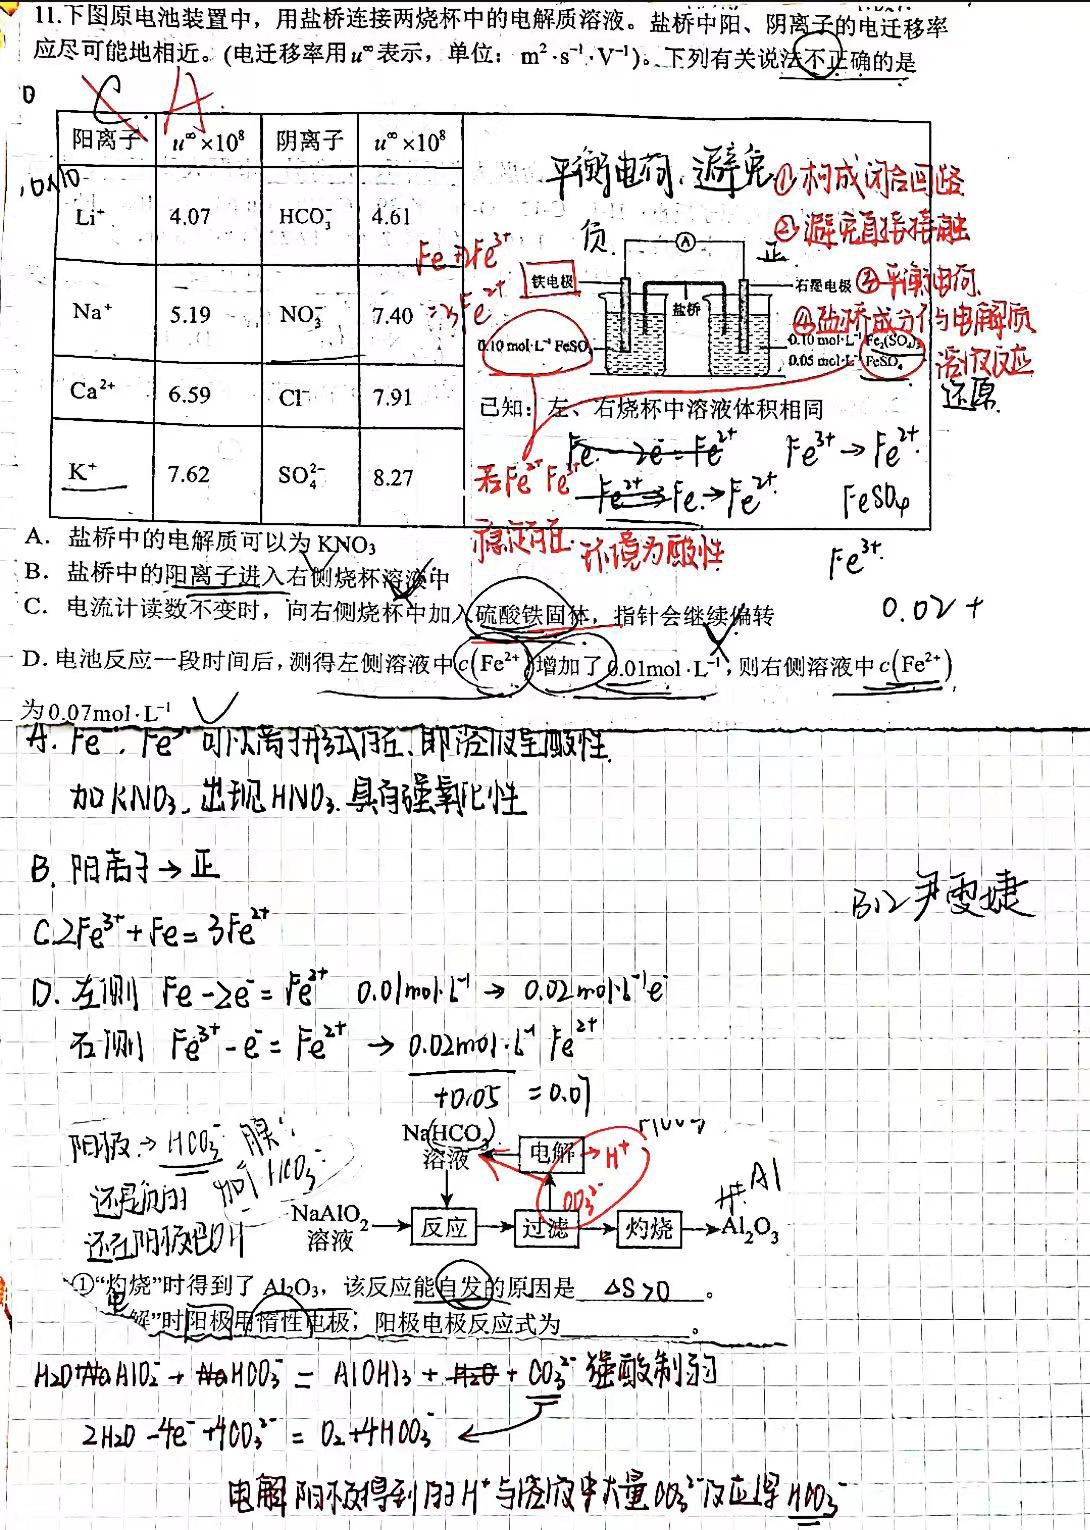 11.下图原电池装置中，用盐桥连接两烧杯中的电解质溶液。盐桥中阳、阴离子的电迁移率
应尽可能地相近。(电迁移率用u∞表示，单位：m²·s⁻¹·V⁻¹)。下列有关说法不正确的是
C A
阳离子 u∞×10⁸ 阴离子 u∞×10⁸
Li⁺ 4.07 HCO₃⁻ 4.61
Na⁺ 5.19 NO₃⁻ 7.40
Ca²⁺ 6.59 Cl⁻ 7.91
K⁺ 7.62 SO₄²⁻ 8.27
平衡电荷、避免
①构成闭合回路
②避免直接接触
③平衡电荷
④盐桥成分不与电解质
溶液反应
负
A
正
铁电极
石墨电极
盐桥
0.10 mol·L⁻¹ FeSO₄
0.10 mol·L⁻¹ Fe₂(SO₄)₃
0.05 mol·L⁻¹ FeSO₄
Fe+2Fe³⁺
=3Fe²⁺
还原
已知：左、右烧杯中溶液体积相同
Fe-2e⁻=Fe²⁺ Fe³⁺→Fe²⁺
Fe→Fe²⁺ FeSO₄
若Fe²⁺ Fe³⁺
稳定存在 环境为酸性
Fe³⁺
A. 盐桥中的电解质可以为KNO₃
B. 盐桥中的阳离子进入右侧烧杯溶液中
C. 电流计读数不变时，向右侧烧杯中加入硫酸铁固体，指针会继续偏转
0.02+
D. 电池反应一段时间后，测得左侧溶液中c(Fe²⁺)增加了0.01mol·L⁻¹，则右侧溶液中c(Fe²⁺)
为0.07mol·L⁻¹
可以离子形式存在、即溶液呈酸性
加KNO₃、出现HNO₃.具有强氧化性
B. 阳离子→正
B12尹雯婕
C.2Fe³⁺+Fe=3Fe²⁺
D. 左侧 Fe-2e⁻=Fe²⁺ 0.01mol·L⁻¹→0.02mol·L⁻¹e⁻
右侧 Fe³⁺-e⁻=Fe²⁺→0.02mol·L⁻¹ Fe²⁺
+0.05 =0.07
阳极→HCO₃⁻
NaHCO₃
溶液
电解
→H⁺
CO₃²⁻
NaAlO₂
溶液
反应
过滤
灼烧
Al₂O₃
Al
①“灼烧”时得到了 Al₂O₃，该反应能自发的原因是 ΔS>0 。
解”时阳极用惰性电极，阳极电极反应式为 。
H₂O+NaAlO₂⁻+NaHCO₃⁻=Al(OH)₃+H₂O+CO₃²⁻ 强酸制弱
2H₂O-4e⁻+4CO₃²⁻=O₂+4HCO₃⁻
电解阳极得到的H⁺与溶液中大量CO₃²⁻反应得HCO₃⁻